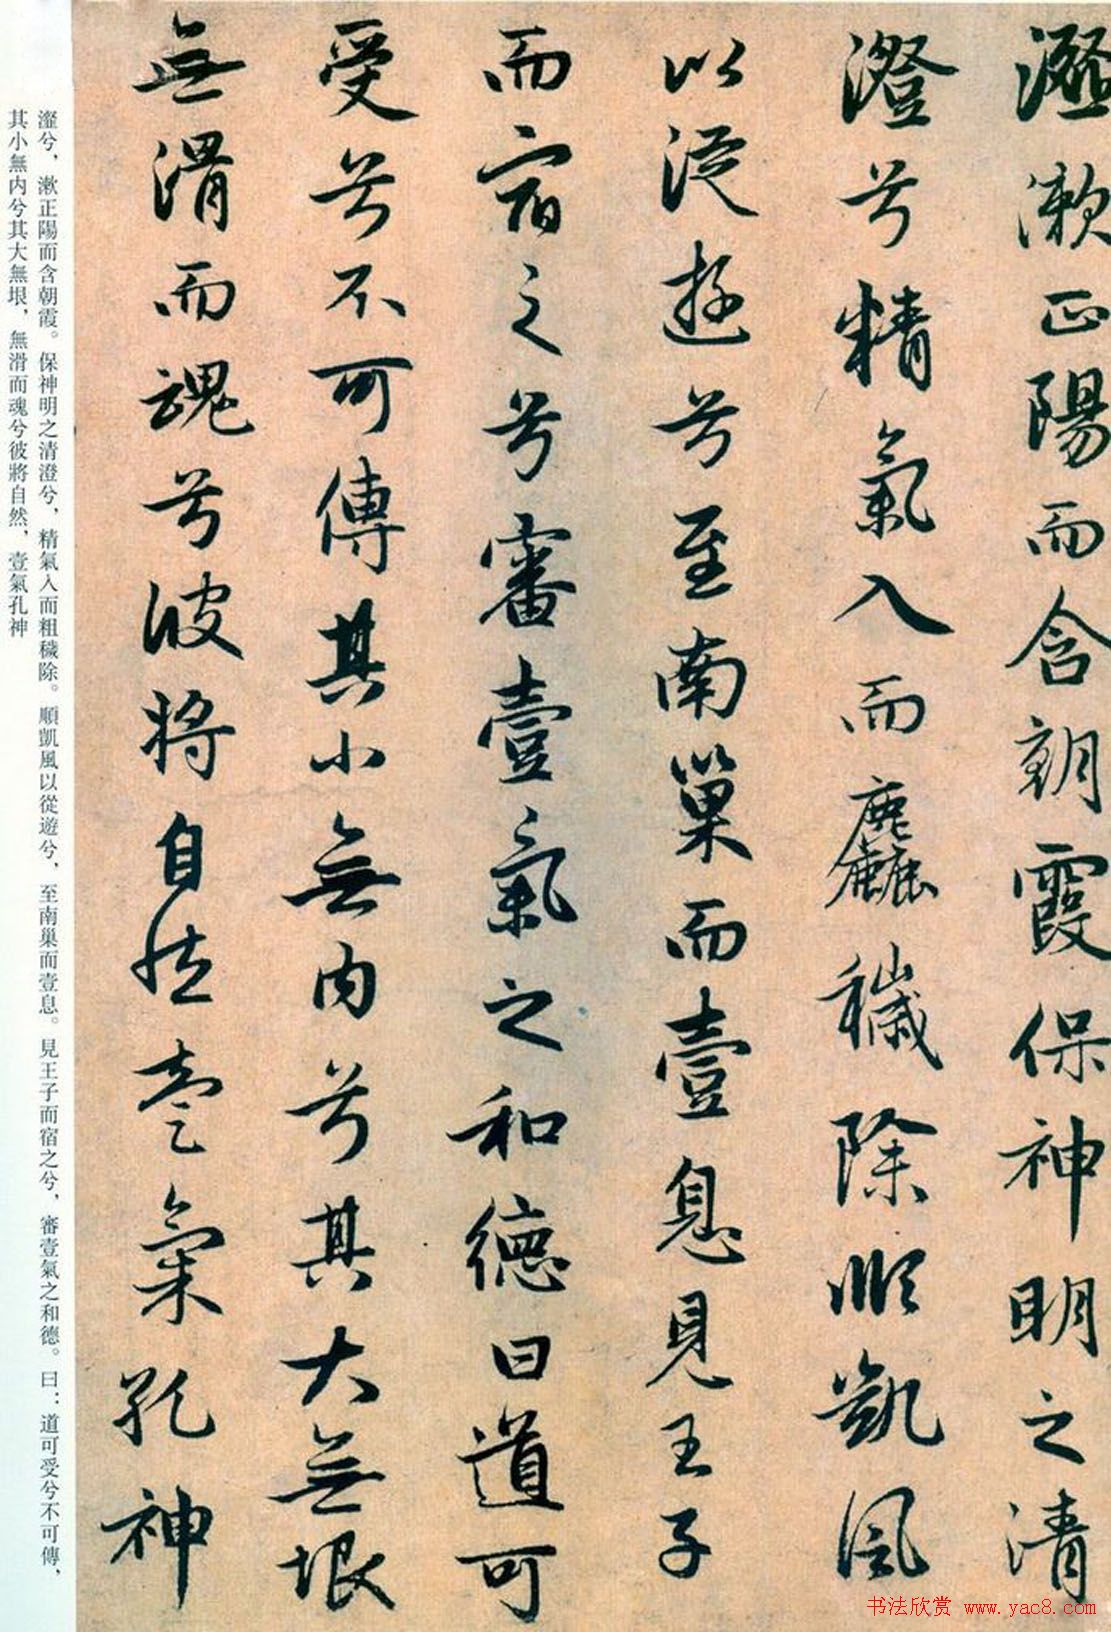 瀣漱正陽而含朝霞保神明之清
澄兮精氣入而麤穢除順凱風
以從遊兮至南巢而壹息見王子
而宿之兮審壹氣之和德曰道可
受兮不可傳其小無内兮其大無垠
無滑而魂兮彼將自然壹氣孔神
瀣兮，漱正陽而含朝霞。保神明之清澄兮，精氣入而粗穢除。順凱風以從遊兮，至南巢而壹息。見王子而宿之兮，審壹氣之和德。曰：道可受兮不可傳、
其小無内兮其大無垠，無滑而魂兮彼將自然，壹氣孔神
书法欣赏 www.yac8.com